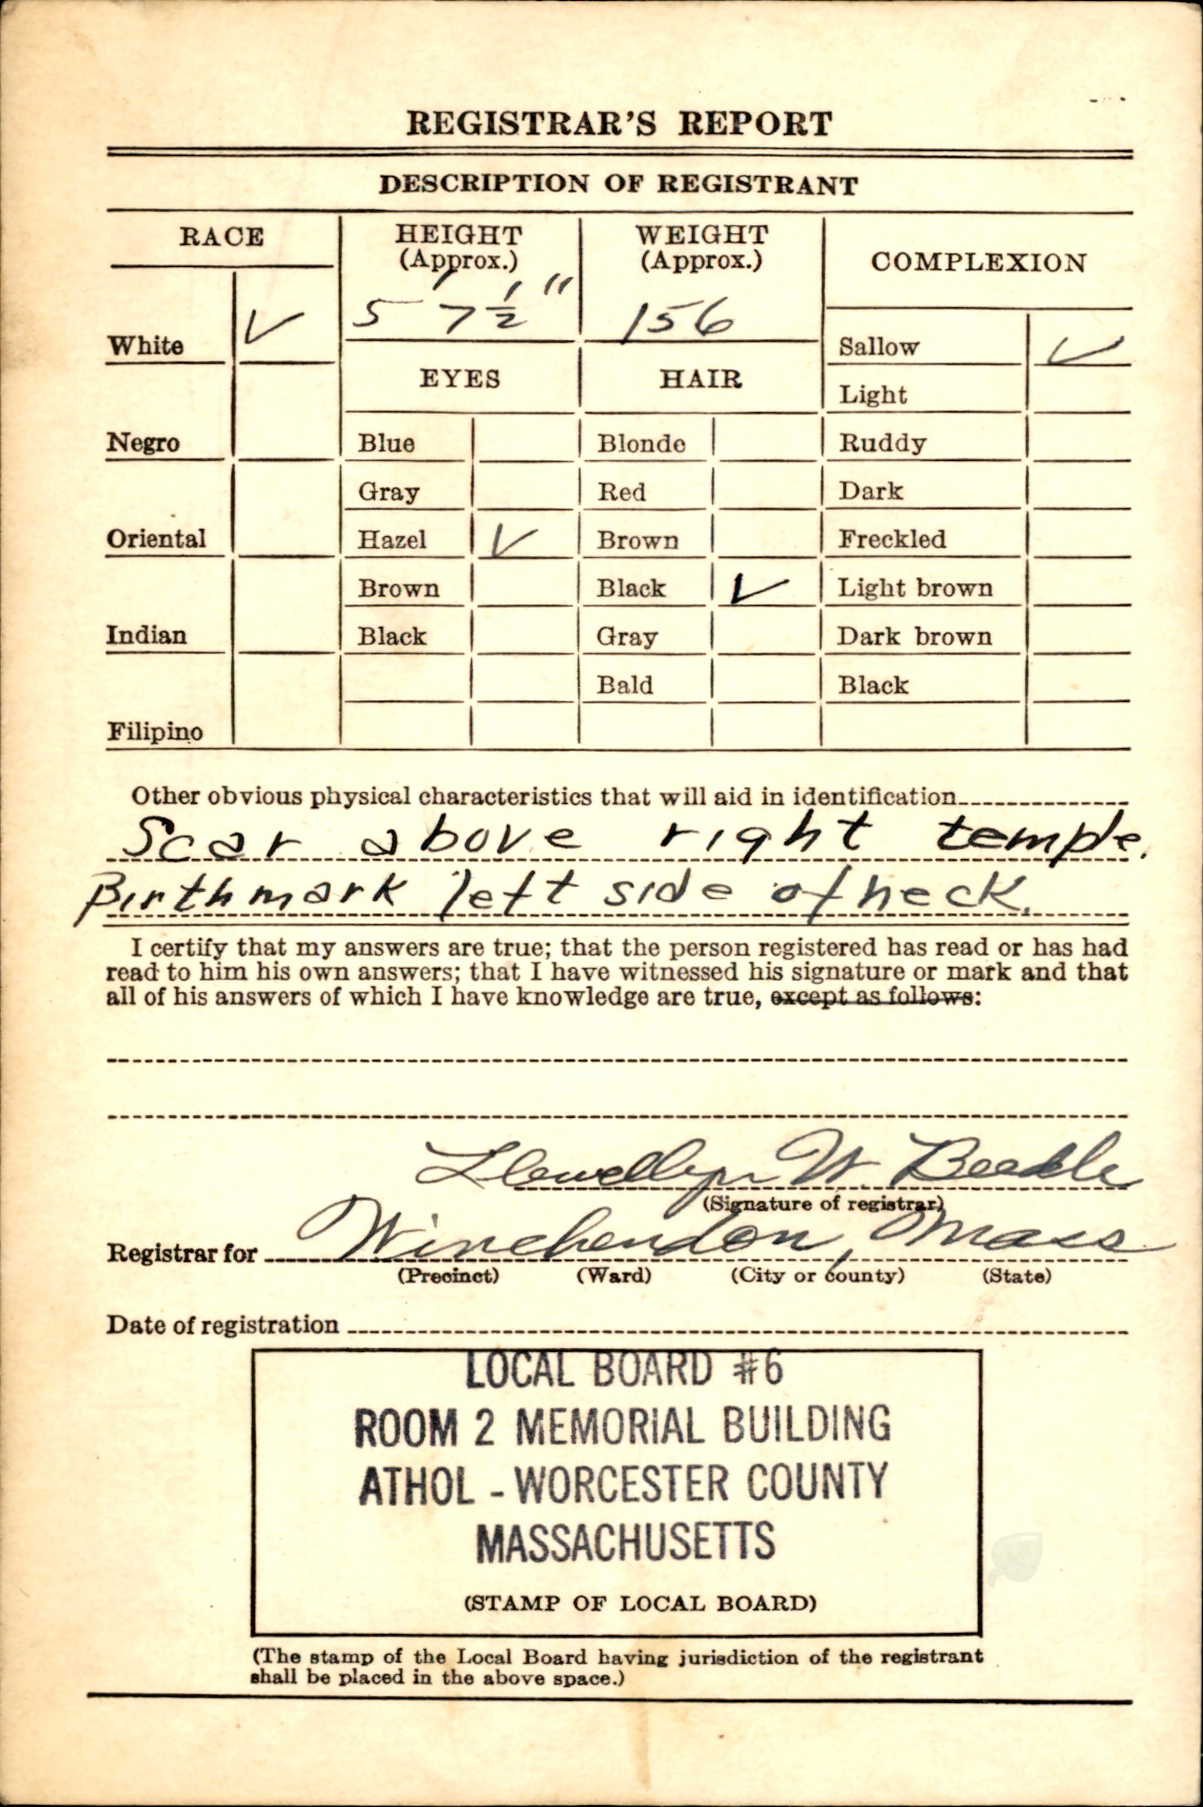 REGISTRAR'S REPORT
DESCRIPTION OF REGISTRANT
RACE
HEIGHT
(Approx.)
WEIGHT
(Approx.)
COMPLEXION
5' 7 1/2"
156
White ✓
Sallow ✓
EYES
HAIR
Light
Negro
Blue
Blonde
Ruddy
Gray
Red
Dark
Oriental
Hazel ✓
Brown
Freckled
Brown
Black ✓
Light brown
Indian
Black
Gray
Dark brown
Bald
Black
Filipino
Other obvious physical characteristics that will aid in identification
Scar above right temple.
Birthmark left side of neck.
I certify that my answers are true; that the person registered has read or has had
read to him his own answers; that I have witnessed his signature or mark and that
all of his answers of which I have knowledge are true, except as follows:
Llewellyn W.
(Signature of registrar)
Registrar for Winchendon, Mass
(Precinct) (Ward) (City or county) (State)
Date of registration
LOCAL BOARD #6
ROOM 2 MEMORIAL BUILDING
ATHOL - WORCESTER COUNTY
MASSACHUSETTS
(STAMP OF LOCAL BOARD)
(The stamp of the Local Board having jurisdiction of the registrant
shall be placed in the above space.)